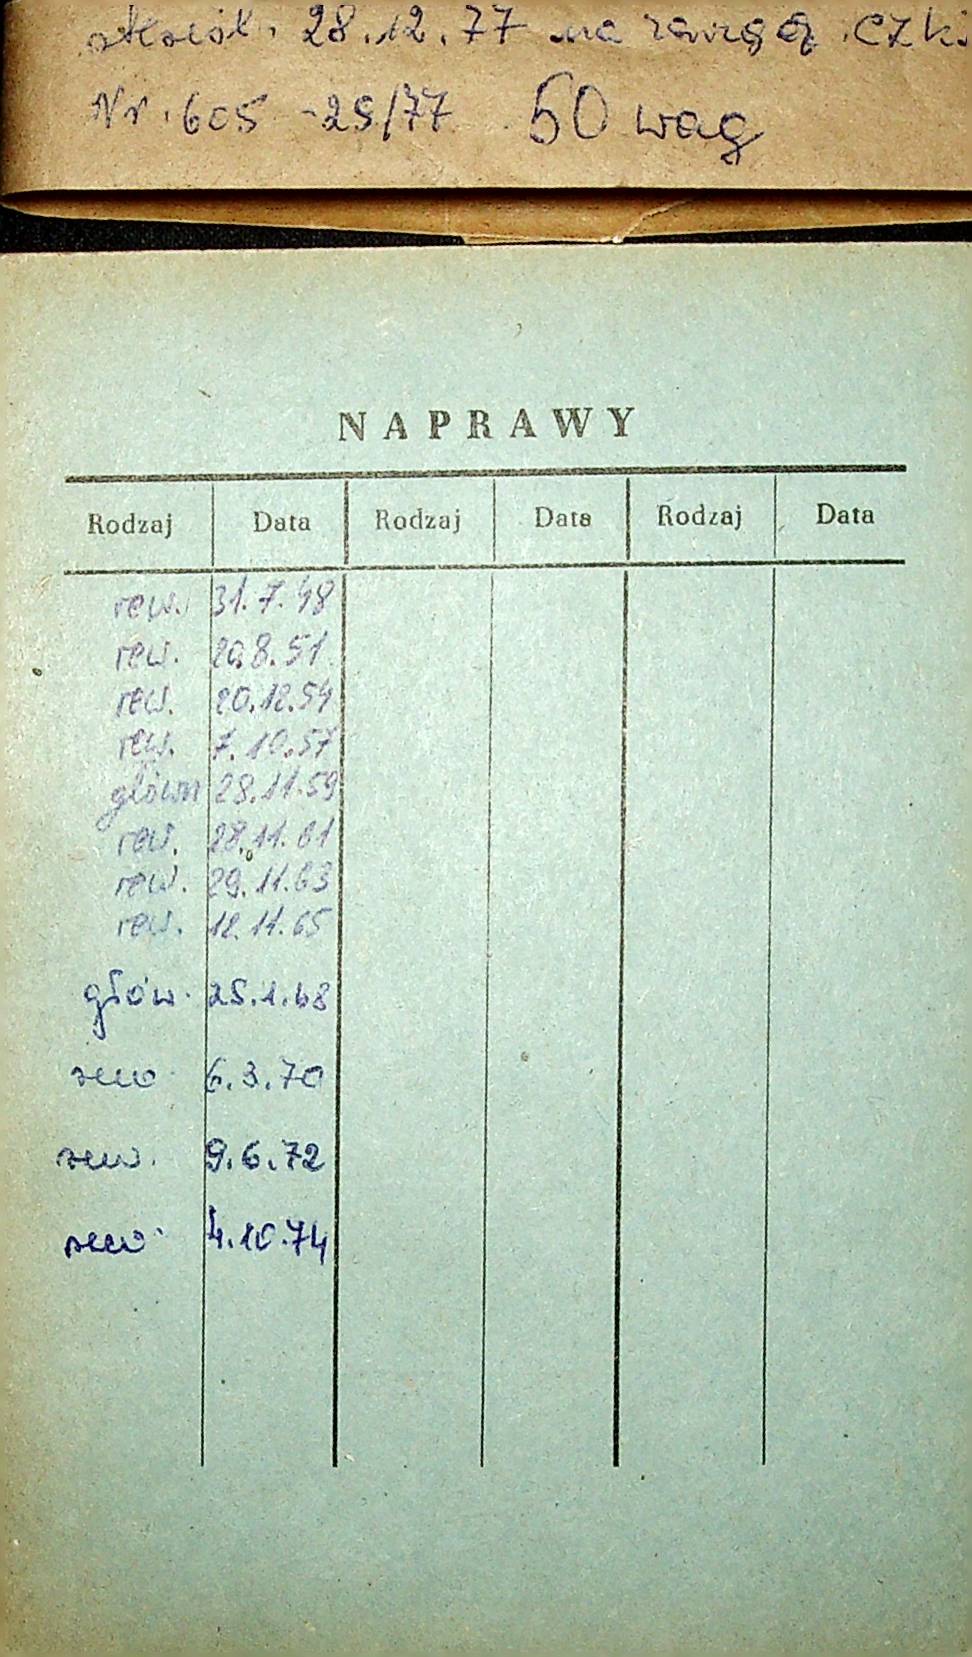 28.12.77 na
Nr. 605 -29/77 50 wag
NAPRAWY
Rodzaj Data Rodzaj Data Rodzaj Data
rew. 31.7.48
rew. 20.8.51
rew. 20.12.54
rew. 7.10.57
główn 28.11.59
rew. 28.11.61
rew. 29.11.63
rew. 12.11.65
głów. 25.1.68
rew. 6.3.70
rew. 9.6.72
rew. 4.10.74